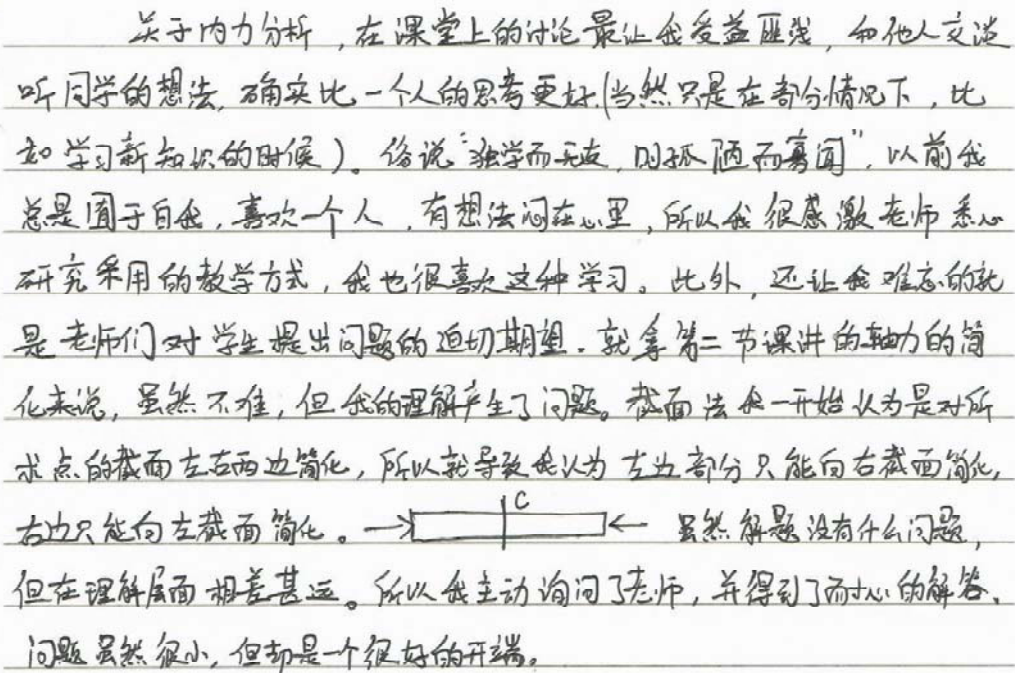 关于内力分析，在课堂上的讨论最让我受益匪浅，和他人交谈
听同学的想法，确实比一个人的思考更好（当然只是在部分情况下，比
如学习新知识的时候）。俗说“独学而无友，则孤陋而寡闻”，以前我
总是囿于自我，喜欢一个人，有想法闷在心里，所以我很感激老师悉心
研究采用的教学方式，我也很喜欢这种学习。此外，还让我难忘的就
是老师们对学生提出问题的迫切期望．就拿第二节课讲的轴力的简
化来说，虽然不难，但我的理解产生了问题。截面法我一开始认为是对所
求点的截面左右两边简化，所以就导致我认为左边部分只能向右截面简化，
右边只能向左截面简化。 C 虽然解题没有什么问题，
但在理解层面相差甚远。所以我主动询问了老师，并得到了耐心的解答．
问题虽然很小，但却是一个很好的开端。